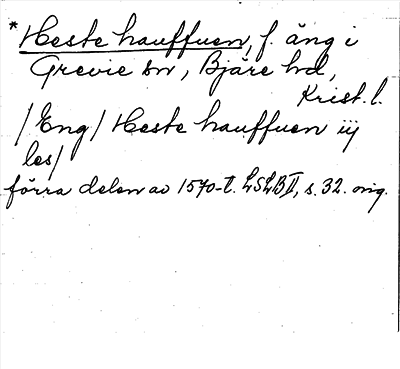 *Heste hauffuen, f. äng i
Grevie sn, Bjäre hd,
Krist. l.
/Eng/ Heste hauffuen iij
les/
förra delen av 1570-t. LSLB II, s. 32. orig.